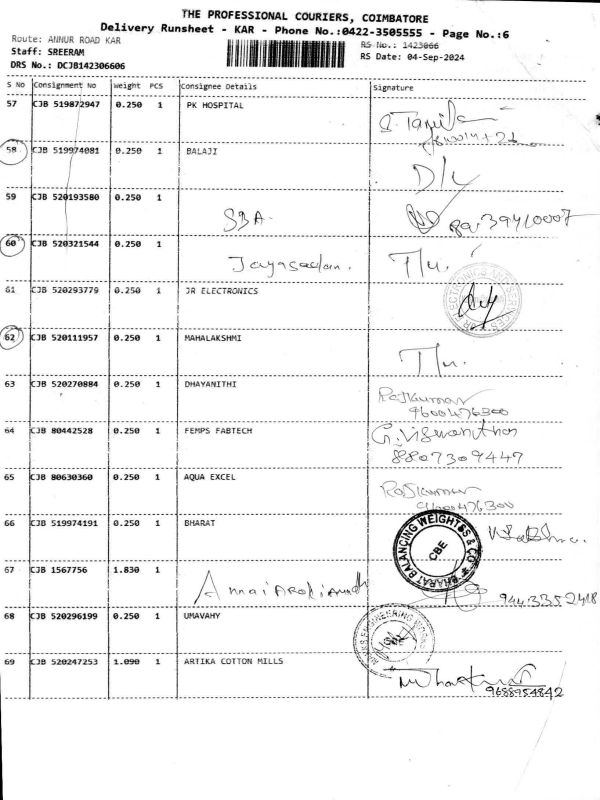 THE PROFESSIONAL COURIERS, COIMBATORE
Delivery Runsheet - KAR - Phone No.:0422-3505555 - Page No.:6
Route: ANNUR ROAD KAR
RS No.: 1423066
Staff: SREERAM
RS Date: 04-Sep-2024
DRS No.: DCJB142306606
S No Consignment No Weight PCS Consignee Details Signature
57 CJB 519872947 0.250 1 PK HOSPITAL
58 CJB 519974081 0.250 1 BALAJI
D/L
59 CJB 520193580 0.250 1
SBA
60 CJB 520321544 0.250 1
T/u.
61 CJB 520293779 0.250 1 JR ELECTRONICS
62 CJB 520111957 0.250 1 MAHALAKSHMI
T/u.
63 CJB 520270884 0.250 1 DHAYANITHI
Rajkumar
9600476300
64 CJB 80442528 0.250 1 FEMPS FABTECH
8807309447
65 CJB 80630360 0.250 1 AQUA EXCEL
Rajkumar
9600476300
66 CJB 519974191 0.250 1 BHARAT
BHARAT BALANCING WEIGHTSS & CO
CBE
67 CJB 1567756 1.830 1
9443352418
68 CJB 520296199 0.250 1 UMAVAHY
69 CJB 520247253 1.090 1 ARTIKA COTTON MILLS
9688954842